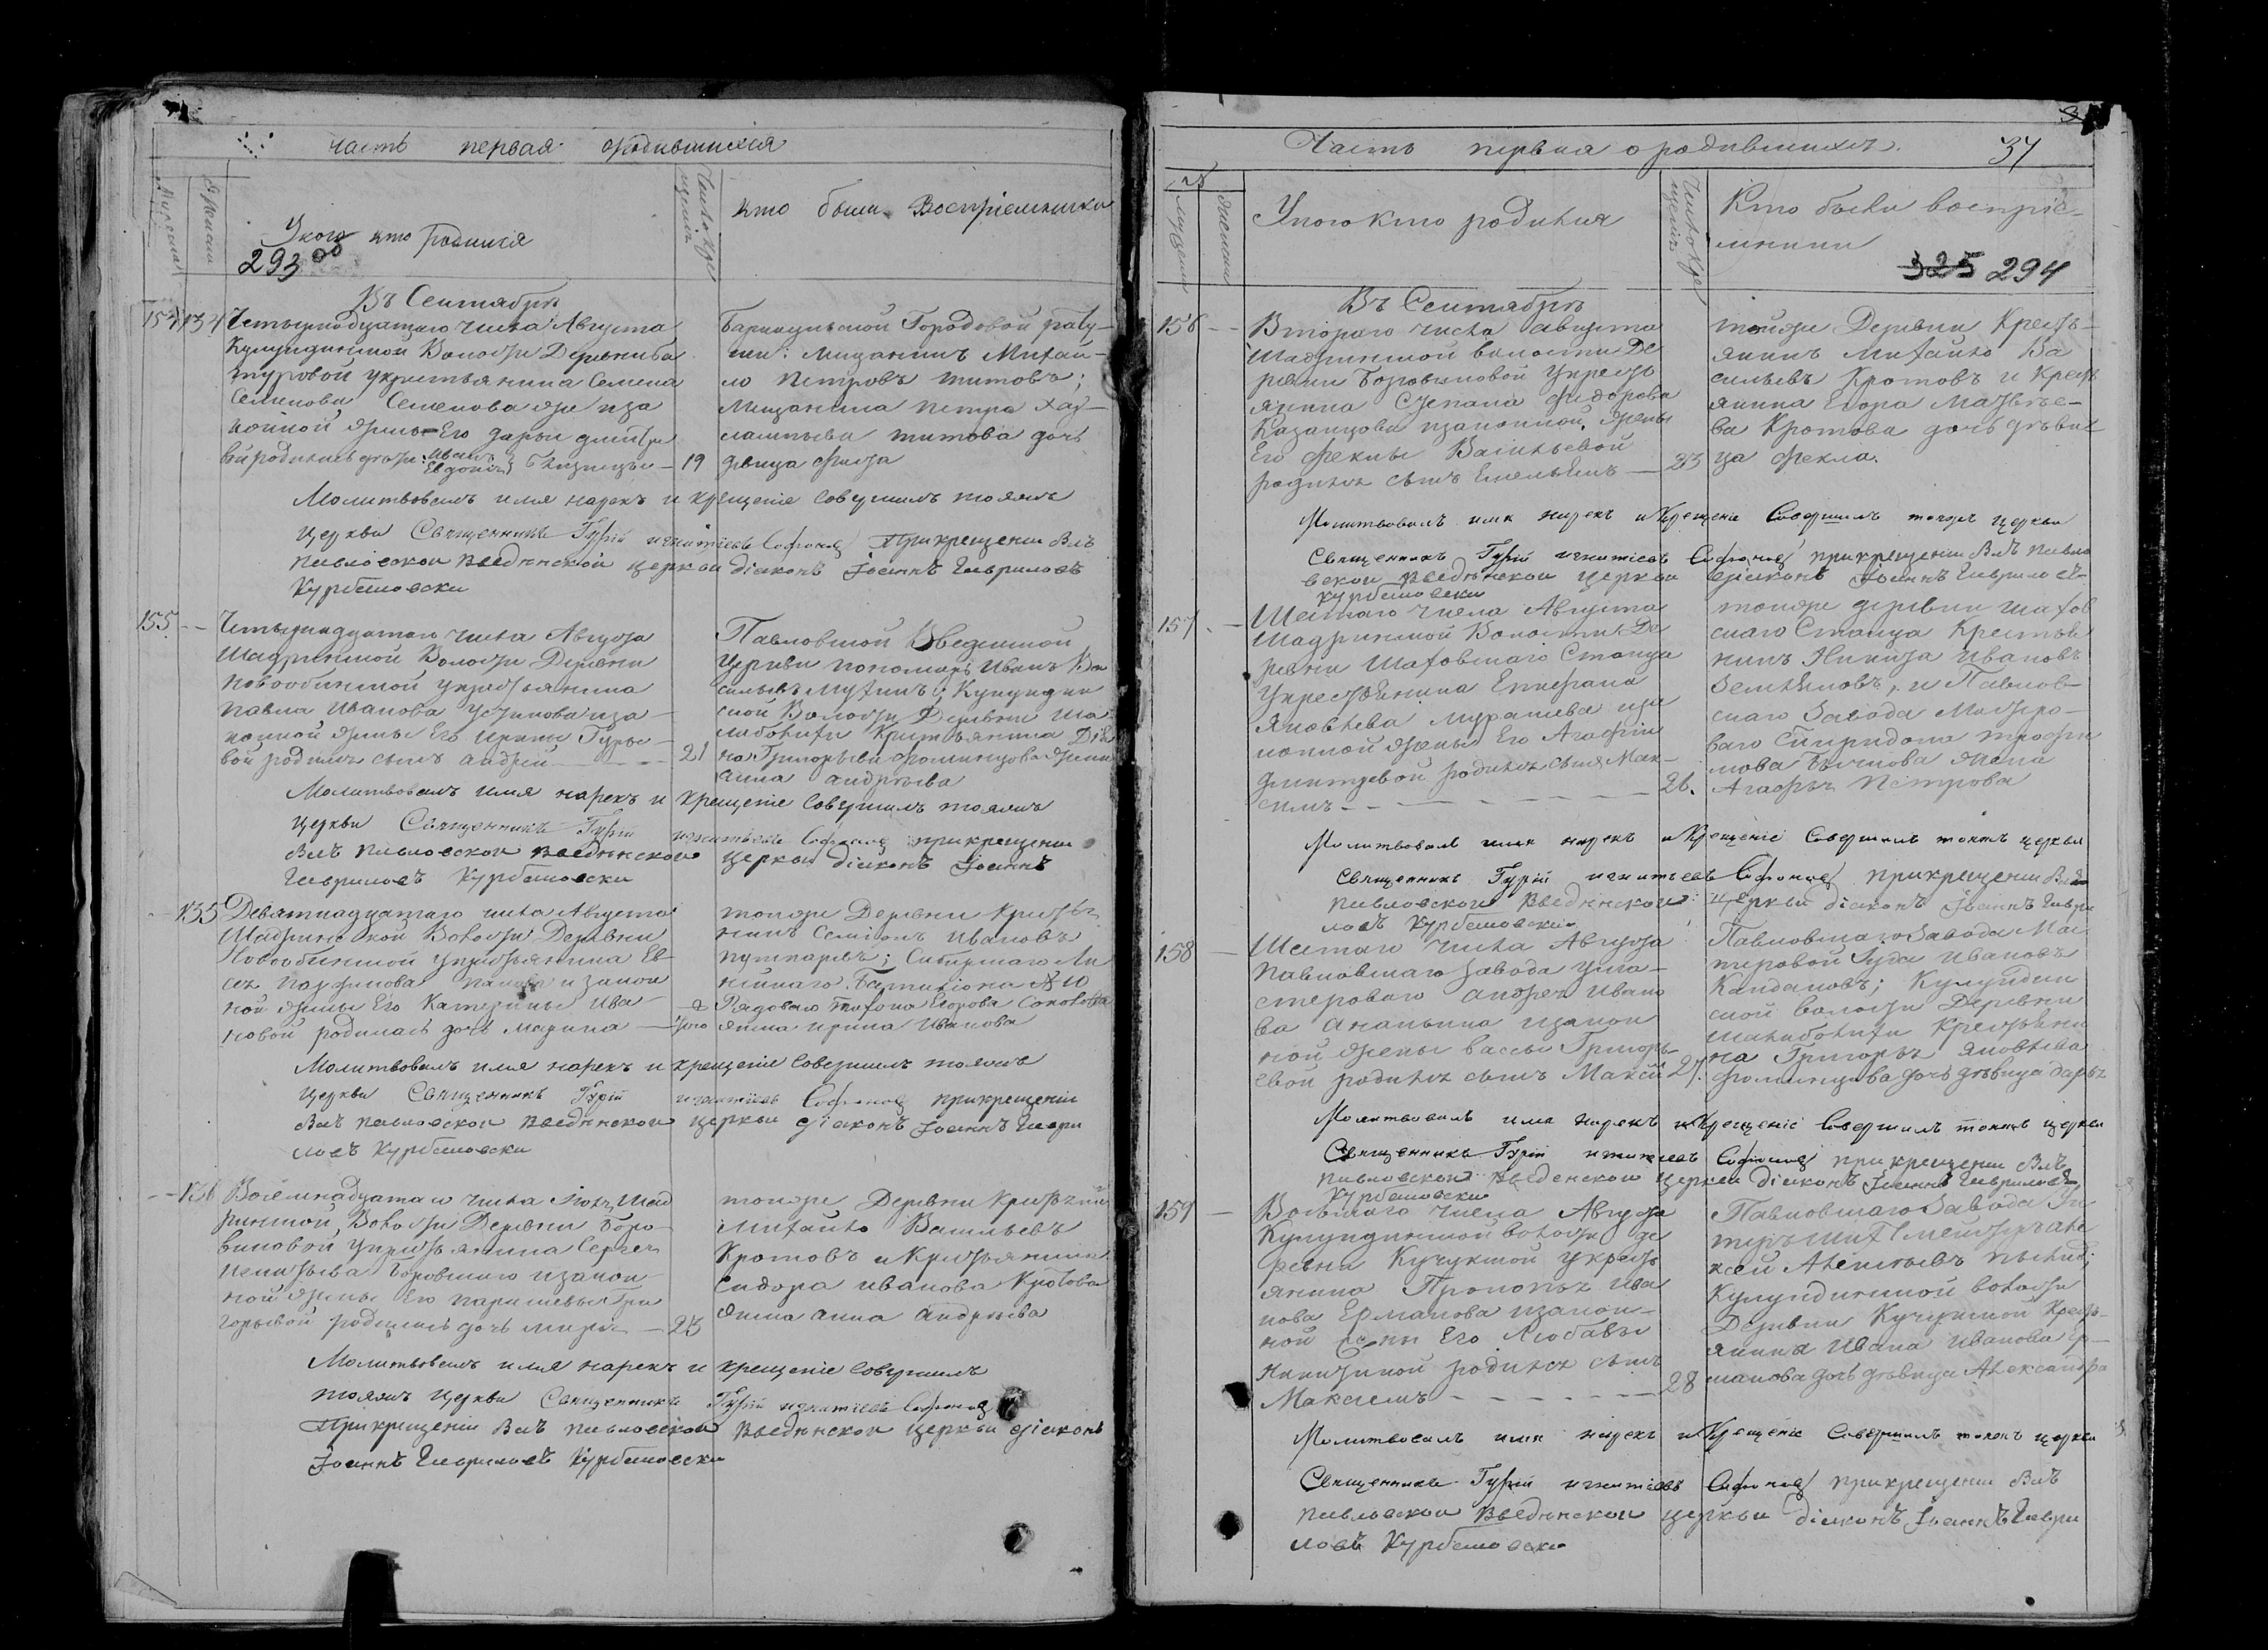 часть первая ородившихся
Мужеска
Женска
У кого кто родился
Число крещенiя
кто были Воспрiемники
293 об
Въ Сентябрѣ
154 134 Четырнадцатаго числа Августа
Кулундинской Волости Деревни Ба
туровой укрестьянина Семена
Семенова Семенова же иза
конной жены Его Дарьи Дмитрi
вой родились дѣти: Иванъ Евдокiя близнецы — 19
Барнаульской Городовой рату-
ши: Мещанинъ Михаи-
ло Петровъ Титовъ;
Мещанина Петра Хар-
лампьева Титова дочь
дѣвица
Молитвовалъ имя нарекъ и крещенiе совершилъ тояжъ
церкви Священникъ Гурiй Игнатiевъ Сафоновъ При крещенiи Былъ
Павловской Введѣнской церкви дiаконъ Iоаннъ Гавриловъ
Курбановски
155 - - Четырнадцатаго числа Августа
Шадринской Волости Деревни
Новообинской укрестьянина
Павла Иванова Устинова иза-
конной жены Его Ирины Гурье-
вой родился сынъ Андрей - - - - 21
Павловской Введенской
Церкви пономарь Иванъ Ва
сильевъ Мухинъ; Кулундин
ской Волости Деревни Ша
Григорьева Фоминцова жена
Анна Андрѣева
Молитвовалъ имя нарекъ и крещенiе совершилъ тояжъ
церкви Священникъ Гурiй Игнатьевъ Сафоновъ при крещенiи
Былъ Павловской Введѣнской церкви дiаконъ Iоаннъ
Гавриловъ Курбановски
- - 135 Девятнадцатаго числа Августа
Шадринской Волости Деревни
Новообинской укрестьянина Ев-
сея Панова изакон
ной жены Его Катерины Ива-
новой родилась дочь Марина —
тойже Деревни Крестья
нинъ Семiонъ Ивановъ
Сибирскаго Ли
нейнаго Баталiона № 10
Рядоваго Егорова Соколова
жена Ирина Иванова
Молитвовалъ имя нарекъ и крещенiе совершилъ тояжъ
церкви Священникъ Гурiй Игнатiевъ Сафоновъ при крещенiи
Былъ Павловской Введѣнской церкви дiаконъ Iоаннъ Гаври
ловъ Курбановски
- - 136 Восемнадцатаго числа Шад
ринской Волости Деревни Боро-
виковой укрестьянина Сергея
изакон
ной жены Его Парасковьи Гри
горьевой родилась дочь Марья — 23
тойже Деревни Крестьянинъ
Михайло Васильевъ
Кротовъ и Крестьянина
Сидора Иванова Кротова
жена Анна Андрѣева
Молитвовалъ имя нарекъ и крещенiе совершилъ
тояжъ церкви Священникъ Гурiй Игнатiевъ Сафоновъ
При крещенiи Былъ Павловской Введѣнской церкви дiаконъ
Iоаннъ Гавриловъ Курбановски
Часть первая о родившихся. 37
Мужеска
Женска
У кого кто родился
Число крещенiя
Кто были воспрiе-
мники
325 294
Въ Сентябрѣ
156 - - Втораго числа Августа
Шадринской волости Де
ревни Боровиковой укресть
янина Степана Федорова
Казанцова изаконной жены
Его Феклы Васильевой
родился сынъ Емельянъ — 23
тойже Деревни Кресть-
янинъ Михайло Ва
сильевъ Кротовъ и Крест
янина Егора Матвѣе-
ва Кротова дочь дѣви
ца Фекла.
Молитвовалъ имя нарекъ и Крещенiе Совершилъ тояжъ церкви
Священникъ Гурiй Игнатiевъ Сафоновъ при крещенiи Былъ Павло
вской Введѣнской церкви дiаконъ Iоаннъ Гавриловъ
Курбановски
157 - - Шестаго числа Августа
Шадринской Волости Де
ревни Шаховскаго Станца
укрестьянина Епифана
Яковлева Мурашева иза
конной жены Его Агафiи
Дмитревой родился сынъ Мак-
симъ - - - - - - - 26.
тойже деревни Шахов
скаго Станца Крестья
нинъ Никита Ивановъ
и Павлов-
скаго Завода Мастеро-
ваго Спиридона Трофи
мова жена
Агафья Петрова
Молитвовалъ имя нарекъ и Крещенiе Совершилъ тояжъ церкви
Священникъ Гурiй Игнатьевъ Сафоновъ при крещенiи Былъ
Павловской Введѣнской церкви дiаконъ Iоаннъ Гаври
ловъ Курбановски
158 - Шестаго числа Августа
Павловскаго Завода у ма-
стероваго Андрея Ивано
ва Ананьина изакон
ной жены Вассы Григорь-
евой родился сынъ Максим 27.
Павловскаго Завода Мас
теровой Ивановъ
Кулундин
ской волости Деревни
Крестьяни
на Григорья Яковлева
Фоминцова дочь дѣвица Дарья
Молитвовалъ имя нарекъ и Крещенiе Совершилъ тояжъ церкви
Священникъ Гурiй Игнатiевъ Сафоновъ при крещенiи Былъ
Павловской Введенской церкви дiаконъ Iоаннъ Гавриловъ
Курбановски
159 - Восьмаго числа Августа
Кулундинской волости де
ревни Кучукской укресть
янина Прокопья Ива
нова Ермакова изакон-
ной жены Его Любавы
Никитиной родился сынъ
Максимъ - - - - - - 28
Павловскаго Завода
Кулундинской волости
Деревни Кучукской Кресть-
янина Ивана Иванова Ер-
макова дочь дѣвица Александра
Молитвовалъ имя нарекъ и Крещенiе Совершилъ тояжъ церкви
Священникъ Гурiй Игнатiевъ Сафоновъ при крещенiи Былъ
Павловской Введѣнской церкви дiаконъ Iоаннъ Гаври
ловъ Курбановски